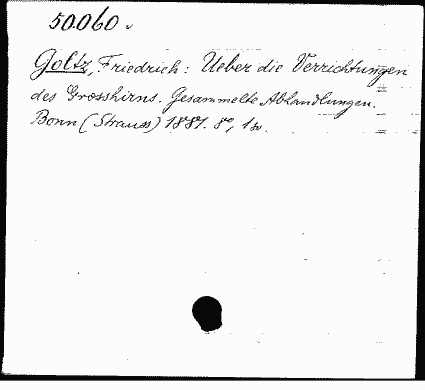 50.060.
Goltz, Friedrich: Ueber die Verrichtungen
des Grosshirns. Gesammelte Abhandlungen.
Bonn (Strauss) 1881. 8°,